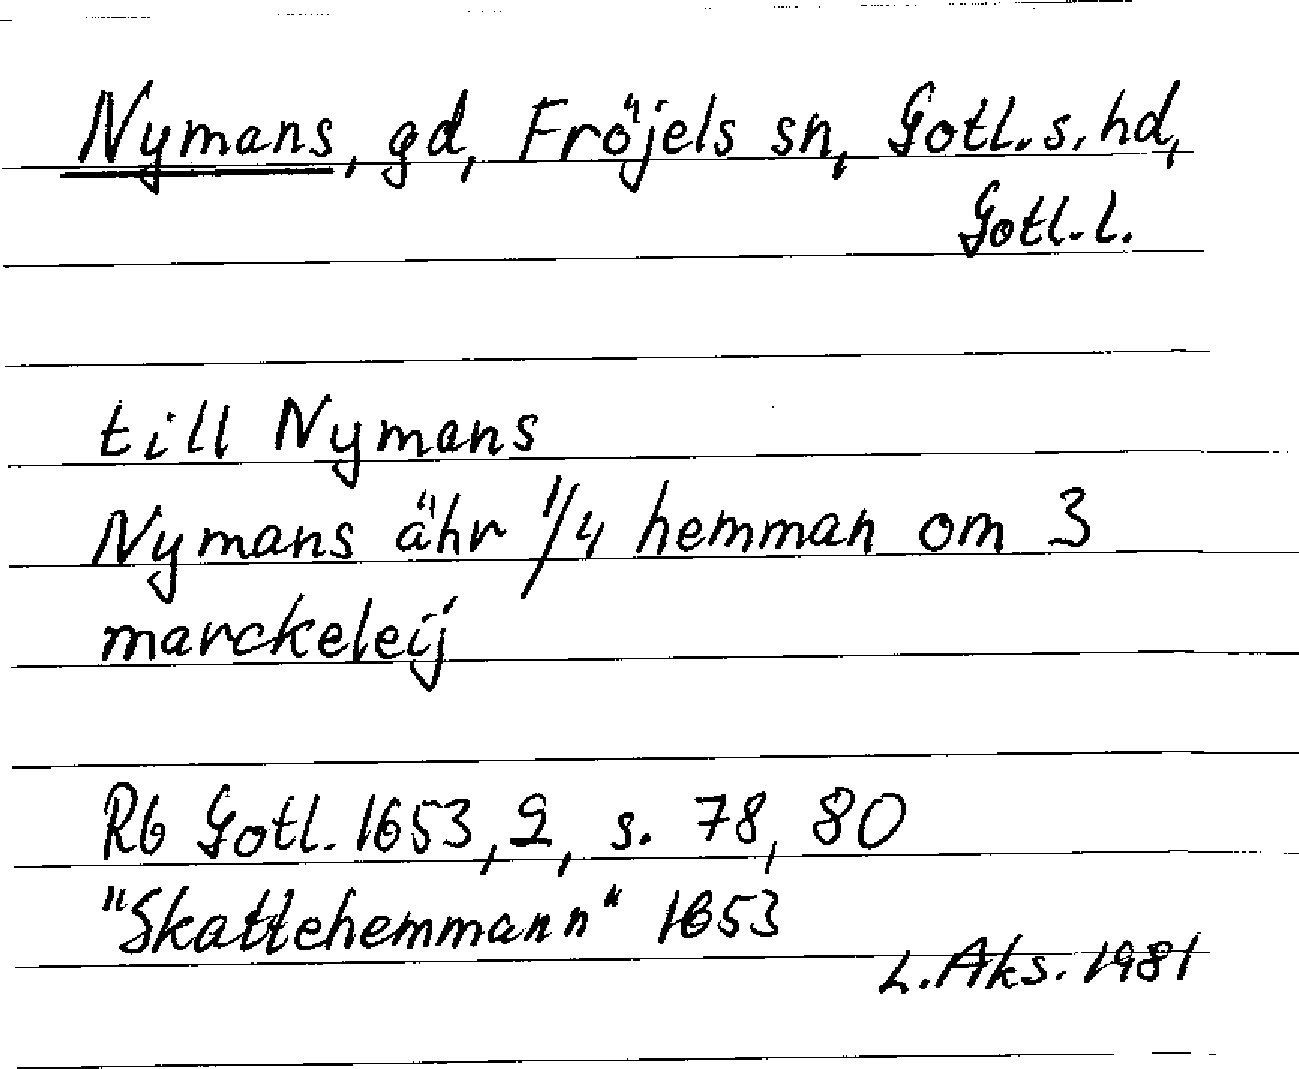 Nymans, gd, Fröjels sn, Gotl. s. hd,
Gotl. l.
till Nymans
Nymans ähr 1/4 hemman om 3
marckeleij
Rb Gotl. 1653, 2, s. 78, 80
"Skattehemmann" 1653
L. Aks. 1981